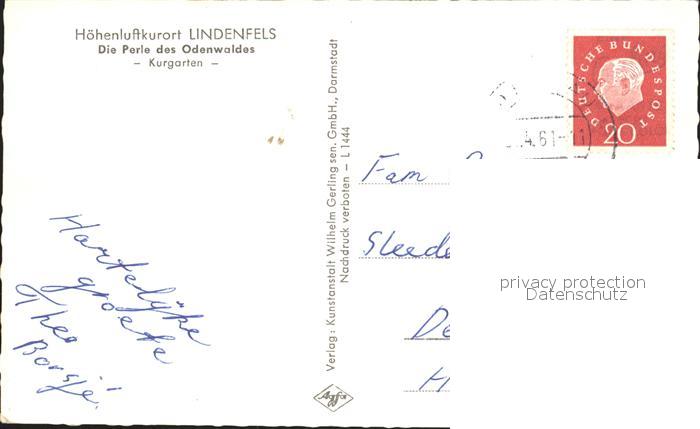 Höhenluftkurort LINDENFELS
Die Perle des Odenwaldes
- Kurgarten -
Verlag: Kunstanstalt Wilhelm Gerling sen. GmbH., Darmstadt
Nachdruck verboten - L 1444
DEUTSCHE BUNDESPOST
20
.4.61-11
Fam
De
H
Hartelijke
groete
Theo
Agfa
privacy protection
Datenschutz